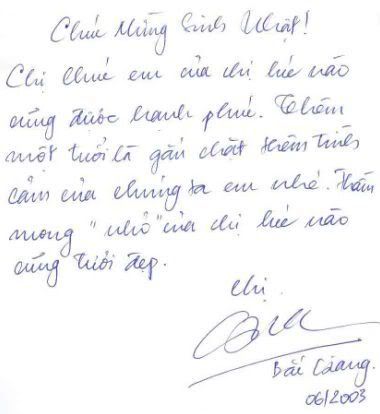 Chúc Mừng Sinh Nhật!
Chị chúc em của chị lúc nào
cũng được hạnh phúc. Thêm
một tuổi là gắn chặt thêm tình
cảm của chúng ta em nhé. Thầm
mong "nhỏ" của chị lúc nào
cũng tươi đẹp.
Chị.
Bắc Giang.
06/2003